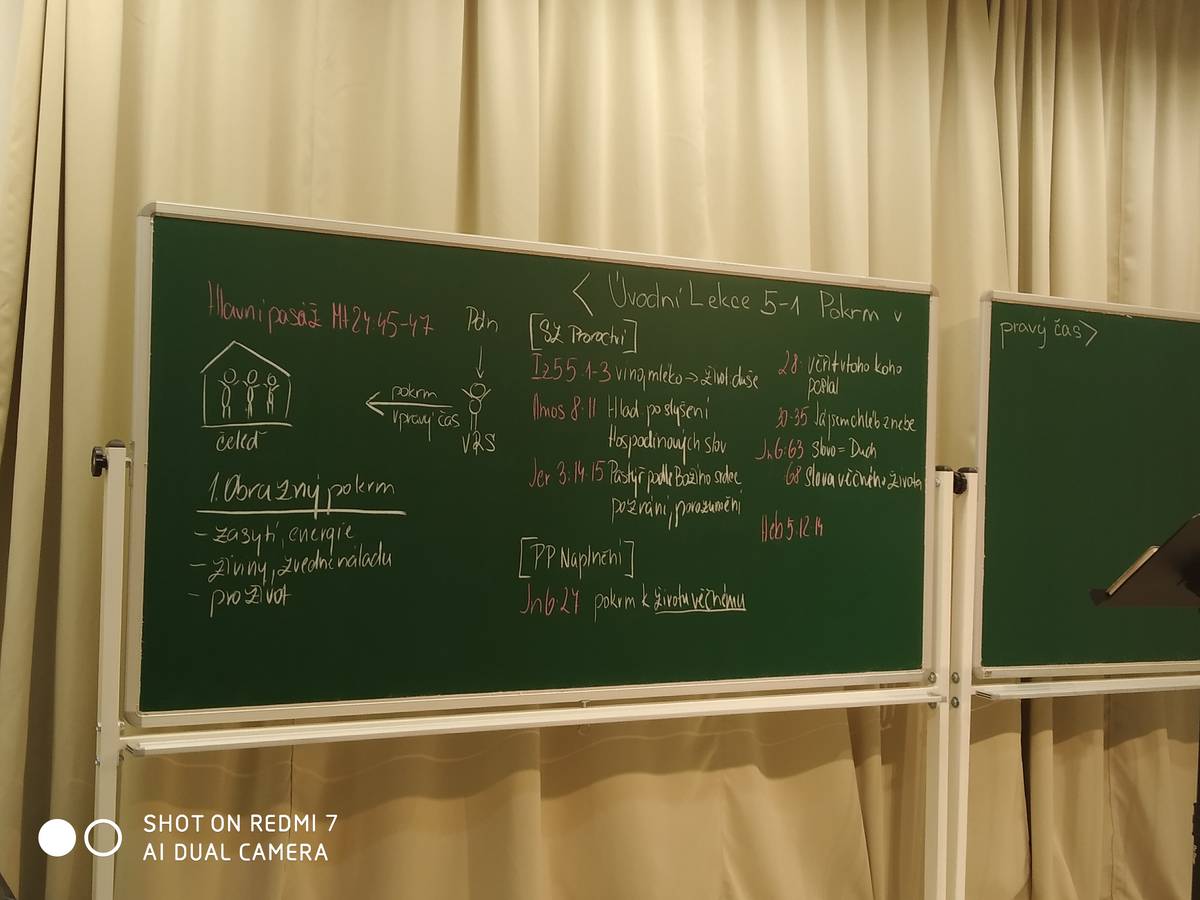 < Úvodní Lekce 5-1 Pokrm v
pravý čas >
Hlavní pasáž Mt 24:45-47
Pán
pokrm
v pravý čas
čeleď
VRS
1. Obrazný pokrm
- zasytí, energie
- živiny, zvedne náladu
- pro život
[SZ Proroctví]
Iz 55:1-3 víno, mléko → život duše
Amos 8:11 Hlad po slyšení
Hospodinových slov
Jer 3:14-15 Pastýř podle Božího srdce
poznání, porozumění
[PP Naplnění]
Jn 6:27 pokrm k životu věčnému
28: věřit v toho koho
poslal
30-35 Já jsem chléb z nebe
Jn 6:63 Slovo = Duch
68 Slova věčného života
Heb 5:12-14
SHOT ON REDMI 7
AI DUAL CAMERA